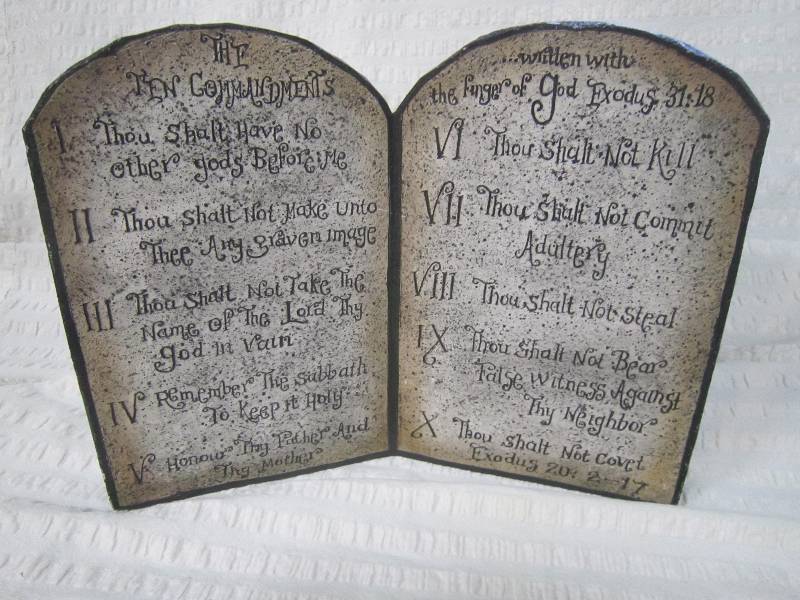 THE
TEN COMMANDMENTS
I Thou Shalt Have No
other gods Before Me
II Thou Shalt Not Make Unto
Thee Any graven image
III Thou Shalt Not Take The
Name Of The Lord Thy
god in Vain
IV Remember The Sabbath
To Keep it Holy
V Honour Thy Father And
Thy Mother
...written with
the finger of god Exodus 31:18
VI Thou Shalt Not Kill
VII Thou Shalt Not Commit
Adultery
VIII Thou Shalt Not Steal
IX Thou Shalt Not Bear
False Witness Against
Thy Neighbor
X Thou Shalt Not Covet
Exodus 20: 2-17